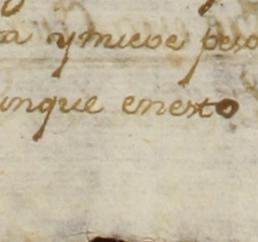 a y nueve peso
unque enesto